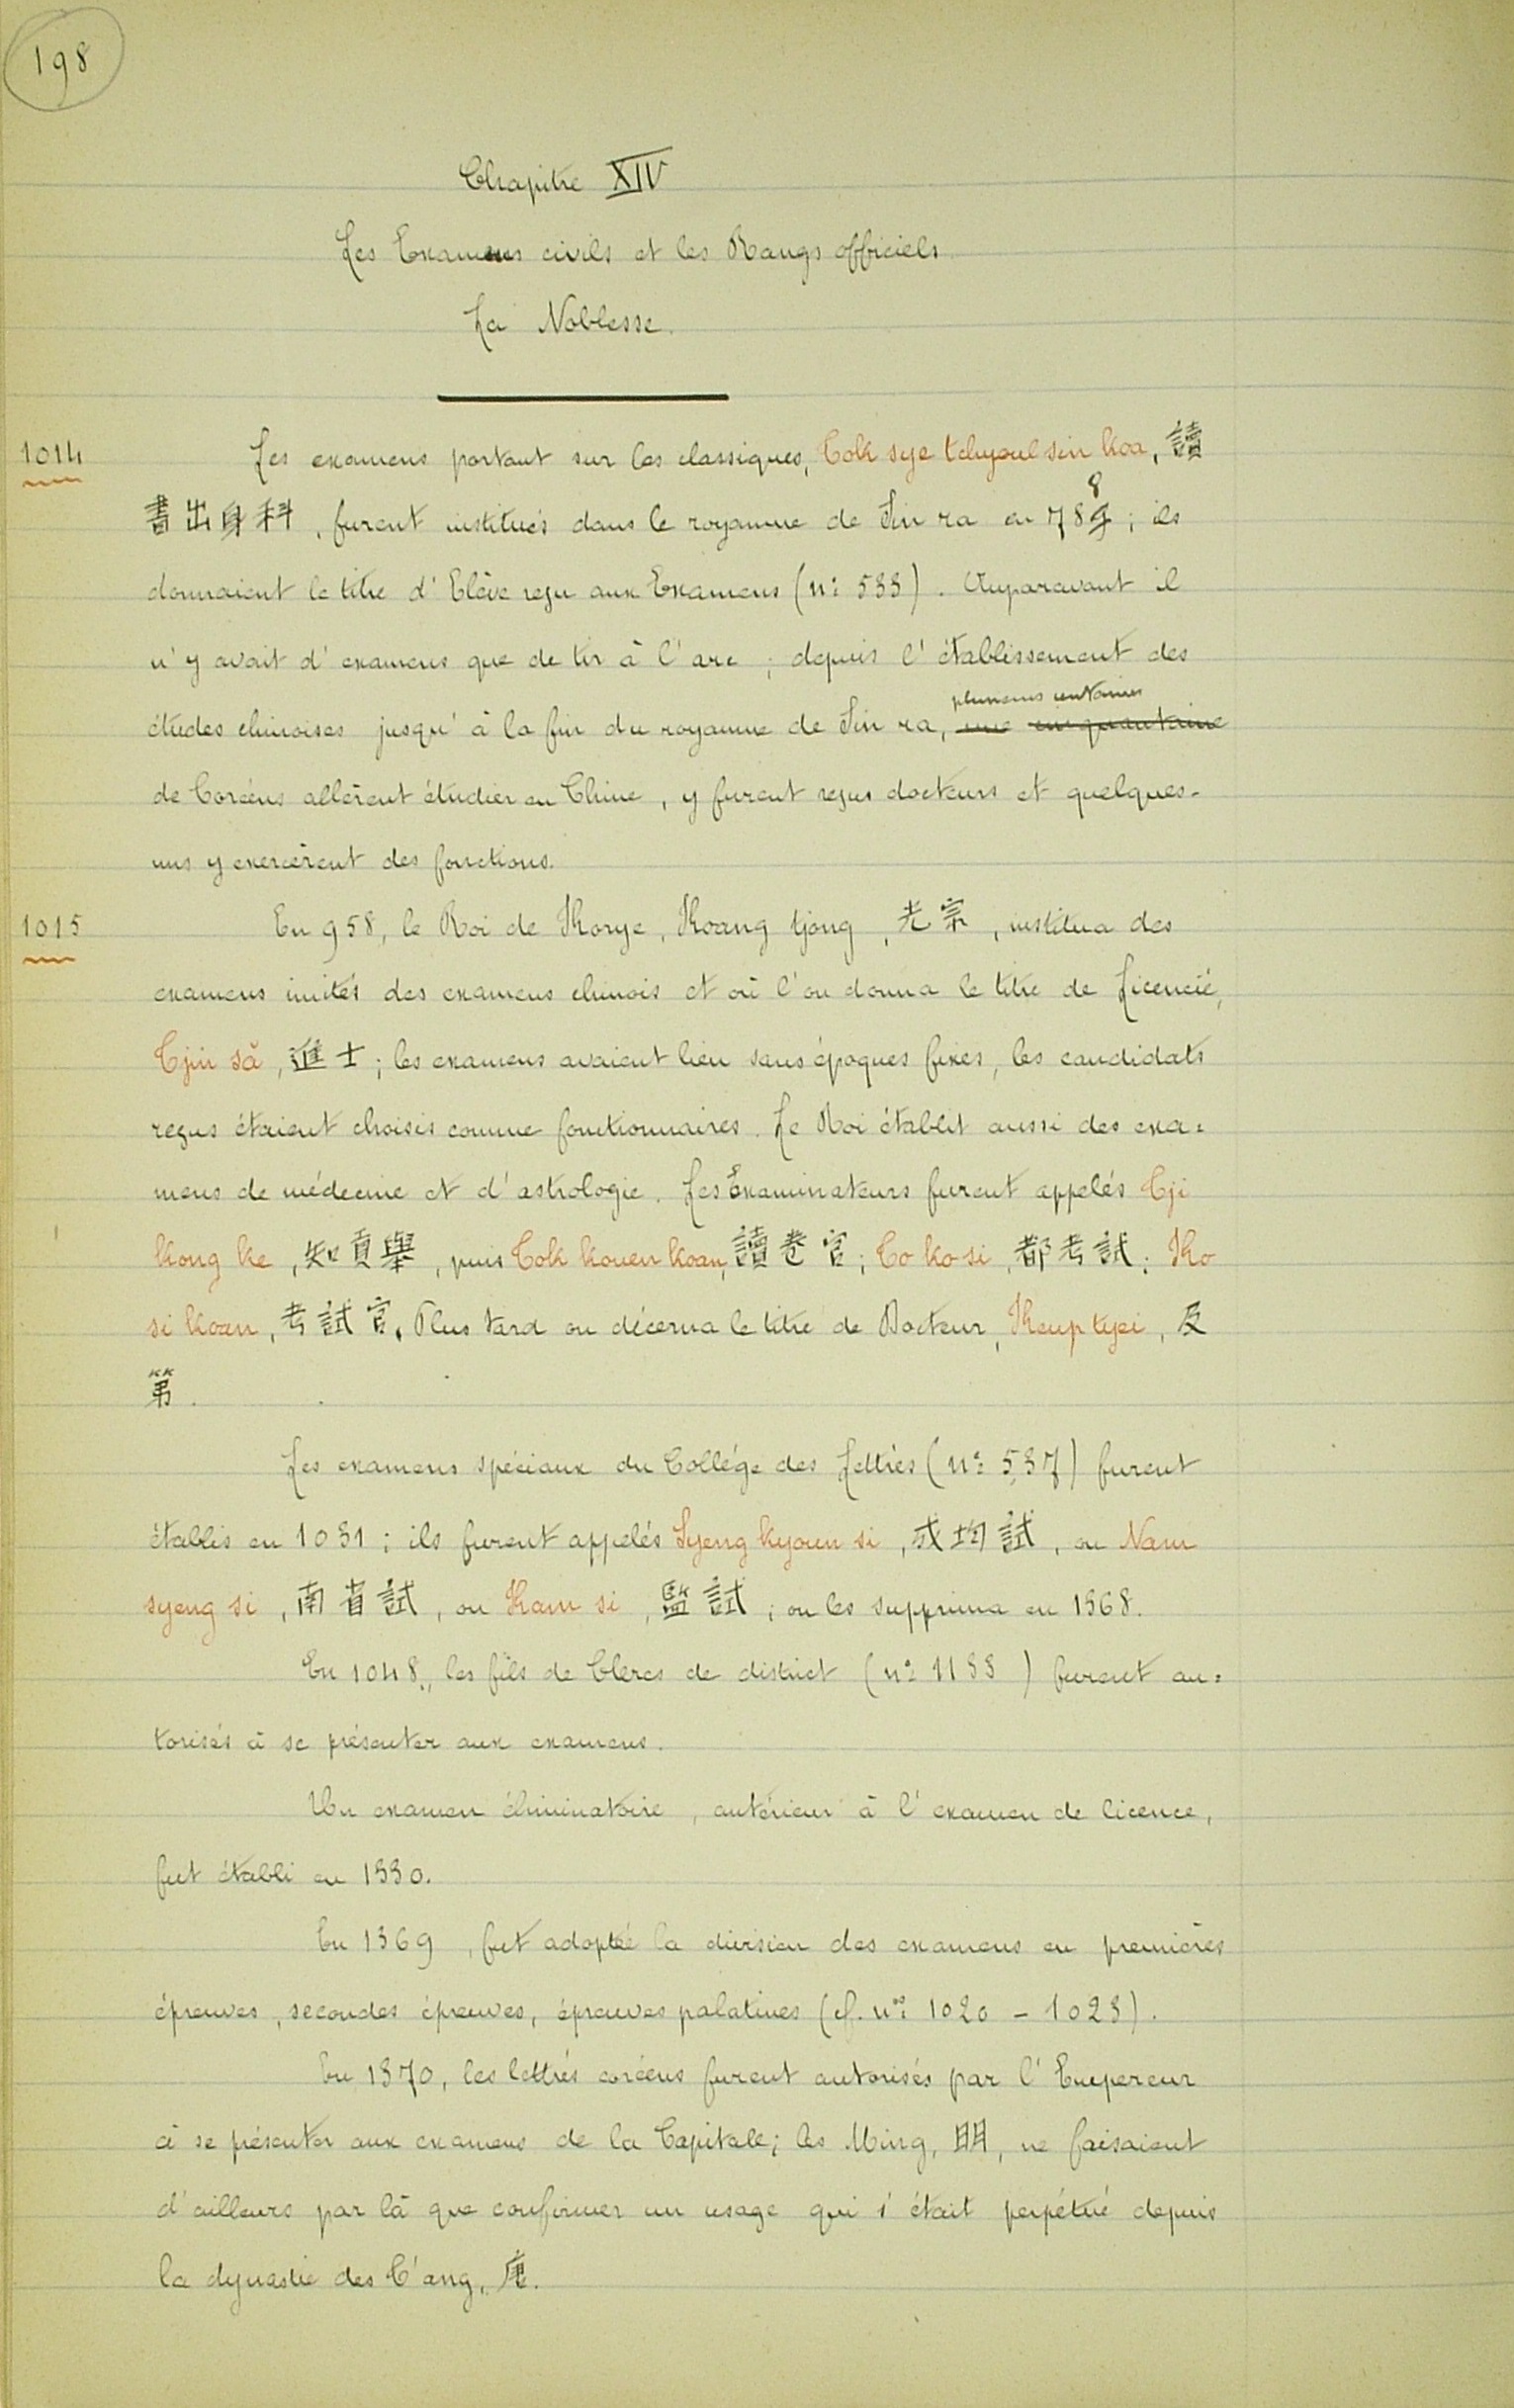 198
Chapitre XIV
Les Examens civils et les Rangs officiels
La Noblesse.
1014 Les examens portant sur les classiques, Tok sye tchyoul sin koa, 讀
書出身科, furent institués dans le royaume de Sin ra en 788; ils
donnaient le titre d'Elève reçu aux Examens (nº 533). Auparavant il
n'y avait d'examens que de tir à l'arc; depuis l'établissement des
plusieurs centaines
études chinoises jusqu'à la fin du royaume de Sin ra, une cinquantaine
de Coréens allèrent étudier en Chine, y furent reçus docteurs et quelques-
uns y exercèrent des fonctions.
1015 En 958, le Roi de Korye, Koang tjong, 光宗, institua des
examens imités des examens chinois et où l'on donna le titre de Licencié,
Tjin să, 進士; les examens avaient lieu sans époques fixes, les candidats
reçus étaient choisis comme fonctionnaires. Le Roi établit aussi des exa=
mens de médecine et d'astrologie. Les Examinateurs furent appelés Tji
kong ke, 知貢舉, puis Tok kouen koan, 讀卷官; To ko si, 都考試; Ko
si koan, 考試官. Plus tard on décerna le titre de Docteur, Keup tyei, 及
第.
Les examens spéciaux du Collége des Lettrés (nº 537) furent
établis en 1031; ils furent appelés Syeng kyoun si, 成均試, ou Nam
syeng si, 南省試, ou Kam si, 監試; on les supprima en 1368.
En 1048, les fils de Clercs de district (nº 1133) furent au=
torisés à se présenter aux examens.
Un examen éliminatoire, antérieur à l'examen de licence,
fut établi en 1330.
En 1369, fut adoptée la division des examens en premières
épreuves, secondes épreuves, épreuves palatines (cf. nos 1020 - 1023).
En 1370, les lettrés coréens furent autorisés par l'Empereur
à se présenter aux examens de la Capitale; les Ming, 明, ne faisaient
d'ailleurs par là que confirmer un usage qui s'était perpétué depuis
la dynastie des T'ang, 唐.